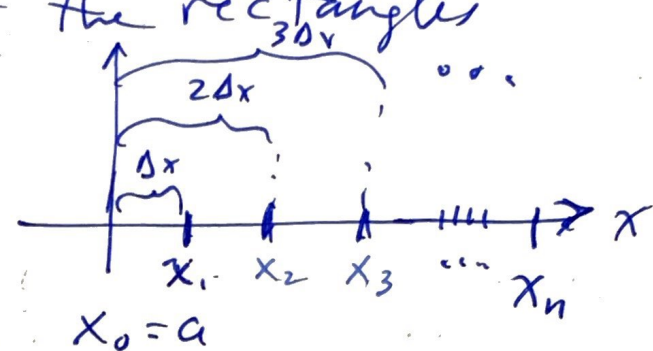 the rectangles
3Δx
2Δx
Δx
x
x₁ x₂ x₃ ... xₙ
x₀ = a